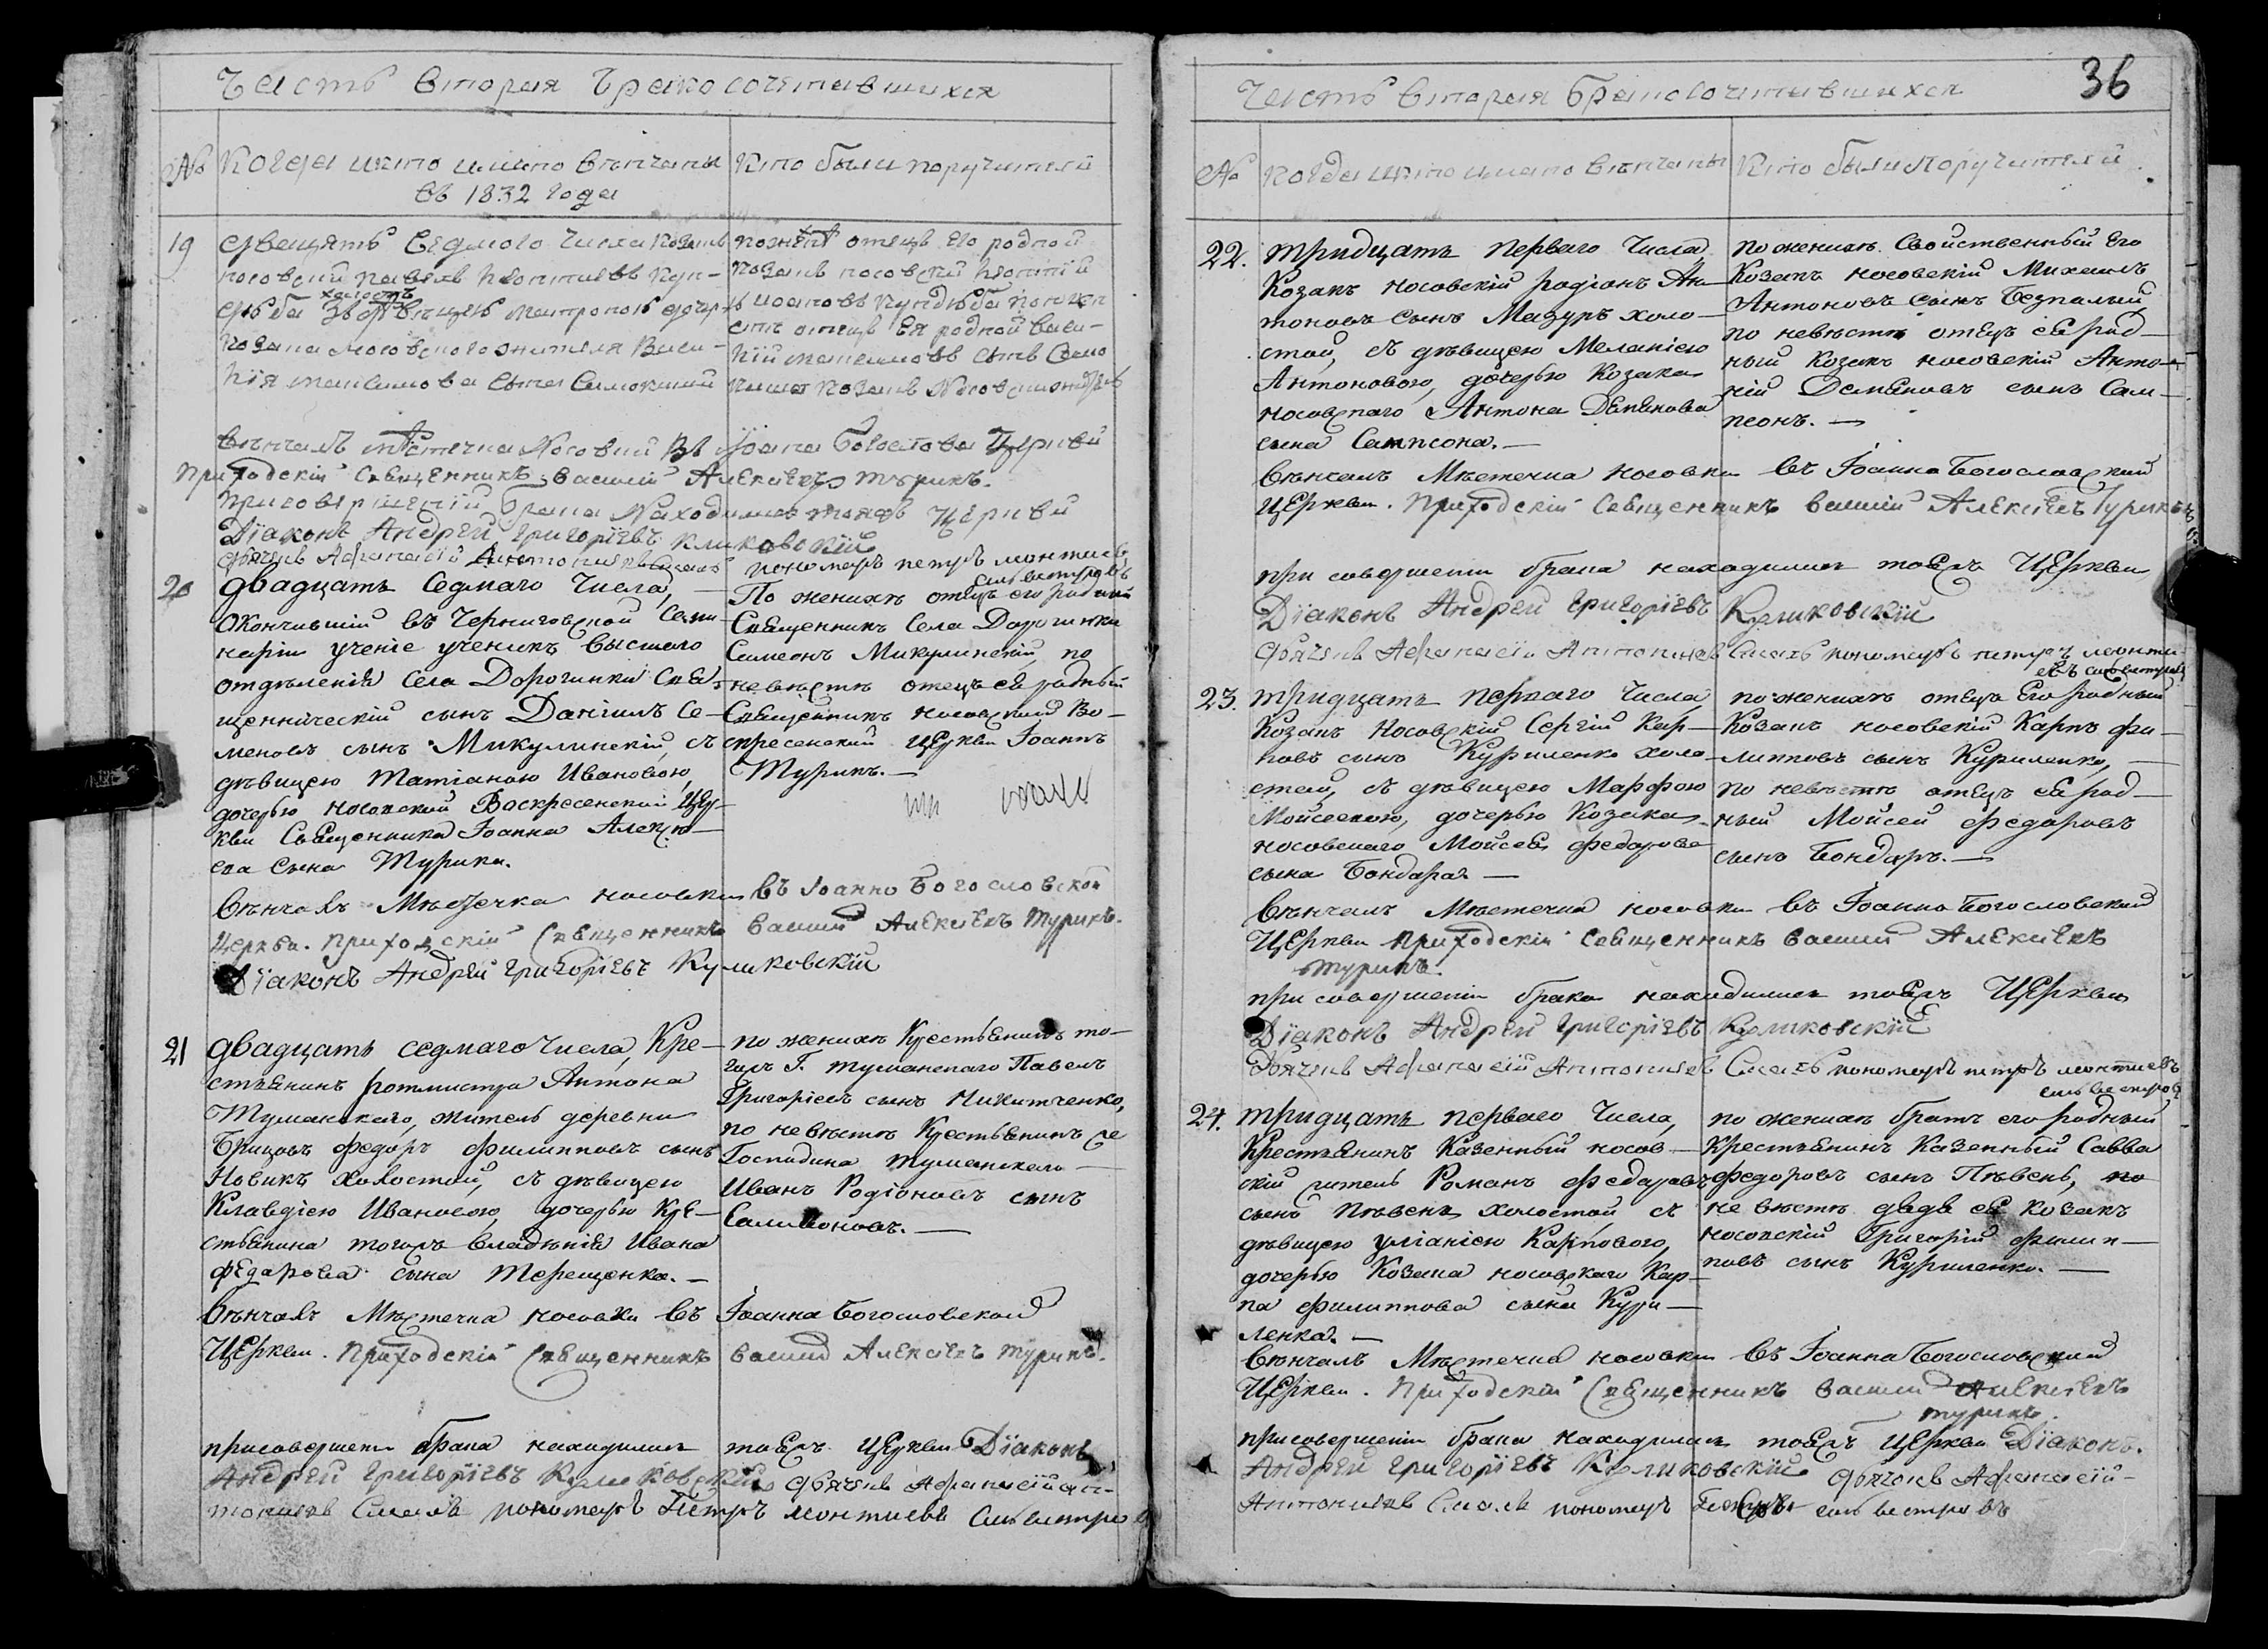 Часть вторая бракосочетавшихся
№ Когда и кто имяно венчаны
въ 1832 года
Кто были поручители
19 двадцять Седмого Числа Козакъ
носовский Павелъ
холостъ
дочерь
Козака Носовского жителя Васи-
лія сына
по женихѣ отецъ его родной
Козакъ носовский
отецъ Ея родной Васи-
лій сынъ Само
Козакъ Носовский
Венчалъ мѣстечка Носовки Въ Іоана Богослова Церкви
Приходскій Священникъ Василій Алексіевъ Турикъ.
При совершеніи брака Находились тояжъ Церкви
Діаконъ Андрей Григоріевъ Куликовскій
Дячокъ Афанасій Антониевъ
пономаръ петръ леонтиевъ
силвестровъ
20 двадцать Седмаго Числа,
Окончившій въ Черниговской Семи-
наріи ученіе ученикъ высшаго
отдѣленія Села Дорогинки Свя-
щенническій сынъ Даніилъ Се-
меновъ сынъ Микулинскій, съ
дѣвицею Татіаною Ивановою,
дочерью носовской Воскресенской Цер-
кви Священника Іоанна Алексѣ-
ева сына Турика.
По женихѣ отецъ его родный
Священникъ Села Дорогинки
Симеонъ Микулинскій, по
невѣстѣ отецъ ея родный
Священникъ носовской Во-
скресенской Церкви Іоаннъ
Турикъ. —
Вѣнчалъ Мѣстечка носовки въ Іоанно Богословской
Церкви. Приходскій Священникъ Василій Алексіевъ Турикъ.
Діаконъ Андрей Григоріевъ Куликовскій
21 двадцать седмаго Числа, Кре-
стьянинъ ротмистра Антона
Туманскаго, житель деревни
федоръ филипповъ сынъ
Новикъ холостой, съ дѣвицею
Клавдіею Ивановою, дочерью Кре-
стьянина тогожъ владѣнія Ивана
федорова сына Терещенка. —
по женихѣ Крестьянинъ то-
гожъ Г. Туманскаго Павелъ
Григоріевъ сынъ Никитченко,
по невѣстѣ Крестьянинъ
Господина Туманскаго —
Иванъ Родіоновъ сынъ
—
Вѣнчалъ Мѣстечка носовки въ Іоанна Богословской
Церкви. Приходскій Священникъ Василій Алексіевъ Турикъ.
при совершеніи брака находились тоежъ Церкви Діаконъ
Андрей Григоріевъ Куликовскій дячокъ Афанасій Ан-
тониевъ пономаръ Петръ леонтиевъ Силвестро
36
Часть вторая бракосочетавшихся
№ когда и кто имяно вѣнчаны
Кто были поручители
22. тридцать перваго Числа,
Козакъ носовскій Родіонъ Ан-
тоновъ сынъ Мазуръ холо-
стой, съ дѣвицею Меланіею
Антоновою, дочерью Козака
носовскаго Антона
сына Сампсона. —
по женихѣ Свойственный Его
Козакъ носовскій Михаилъ
Антоновъ сынъ Безпалый
по невѣстѣ отецъ ея род-
ный Козакъ носовскій Анто-
ній сынъ Сам-
псонъ. —
Вѣнчалъ Мѣстечка носовки въ Іоанна Богословской
Церкви. Приходскій Священникъ Василій Алексіевъ Турикъ
при совершеніи брака находились тоежъ Церкви
Діаконъ Андрей Григоріевъ Куликовскій
дячокъ Афанасій Антониевъ пономаръ петръ леонти-
евъ силвестровъ
23. тридцать перваго Числа
Козакъ Носовскій Сергій Кар-
повъ сынъ Куриленко холо-
стой, съ дѣвицею Марфою
Мойсеевою, дочерью Козака
носовскаго Мойсея федорова
сына Бондаря —
по женихѣ отецъ Его родный
Козакъ носовскій Карпъ фи-
липповъ сынъ Куриленко, —
по невѣстѣ отецъ ея род-
ный Мойсей федоровъ
сынъ Бондарь. —
Вѣнчалъ Мѣстечка носовки въ Іоанна Богословской
Церкви Приходскій Священникъ Василій Алексіевъ
Турикъ.
при совершеніи брака находились тоежъ Церкви
Діаконъ Андрей Григоріевъ Куликовскій
Дячокъ Афанасій Антониевъ пономаръ петръ леонтиевъ
силвестровъ
24. тридцать перваго Числа,
Крестьянинъ Казенный носов-
скій житель Романъ федоровъ
сынъ Пѣвень холостой, съ
дѣвицею Уліаніею Карповою,
дочерью Козака носовскаго Кар-
па филиппова сына Кури-
ленка. —
по женихѣ братъ его родный
Крестьянинъ Казенный Савва
федоровъ сынъ Пѣвень, по
невѣстѣ дядя ея Козакъ
носовскій Григорій филип-
повъ сынъ Куриленко. —
Вѣнчалъ Мѣстечка носовки въ Іоанна Богословской
Церкви. Приходскій Священникъ Василій Алексіевъ
Турикъ.
при совершеніи брака находились тоежъ Церкви Діаконъ.
Андрей Григоріевъ Куликовскій дячокъ Афанасій
Антониевъ пономаръ Петръ силвестровъ